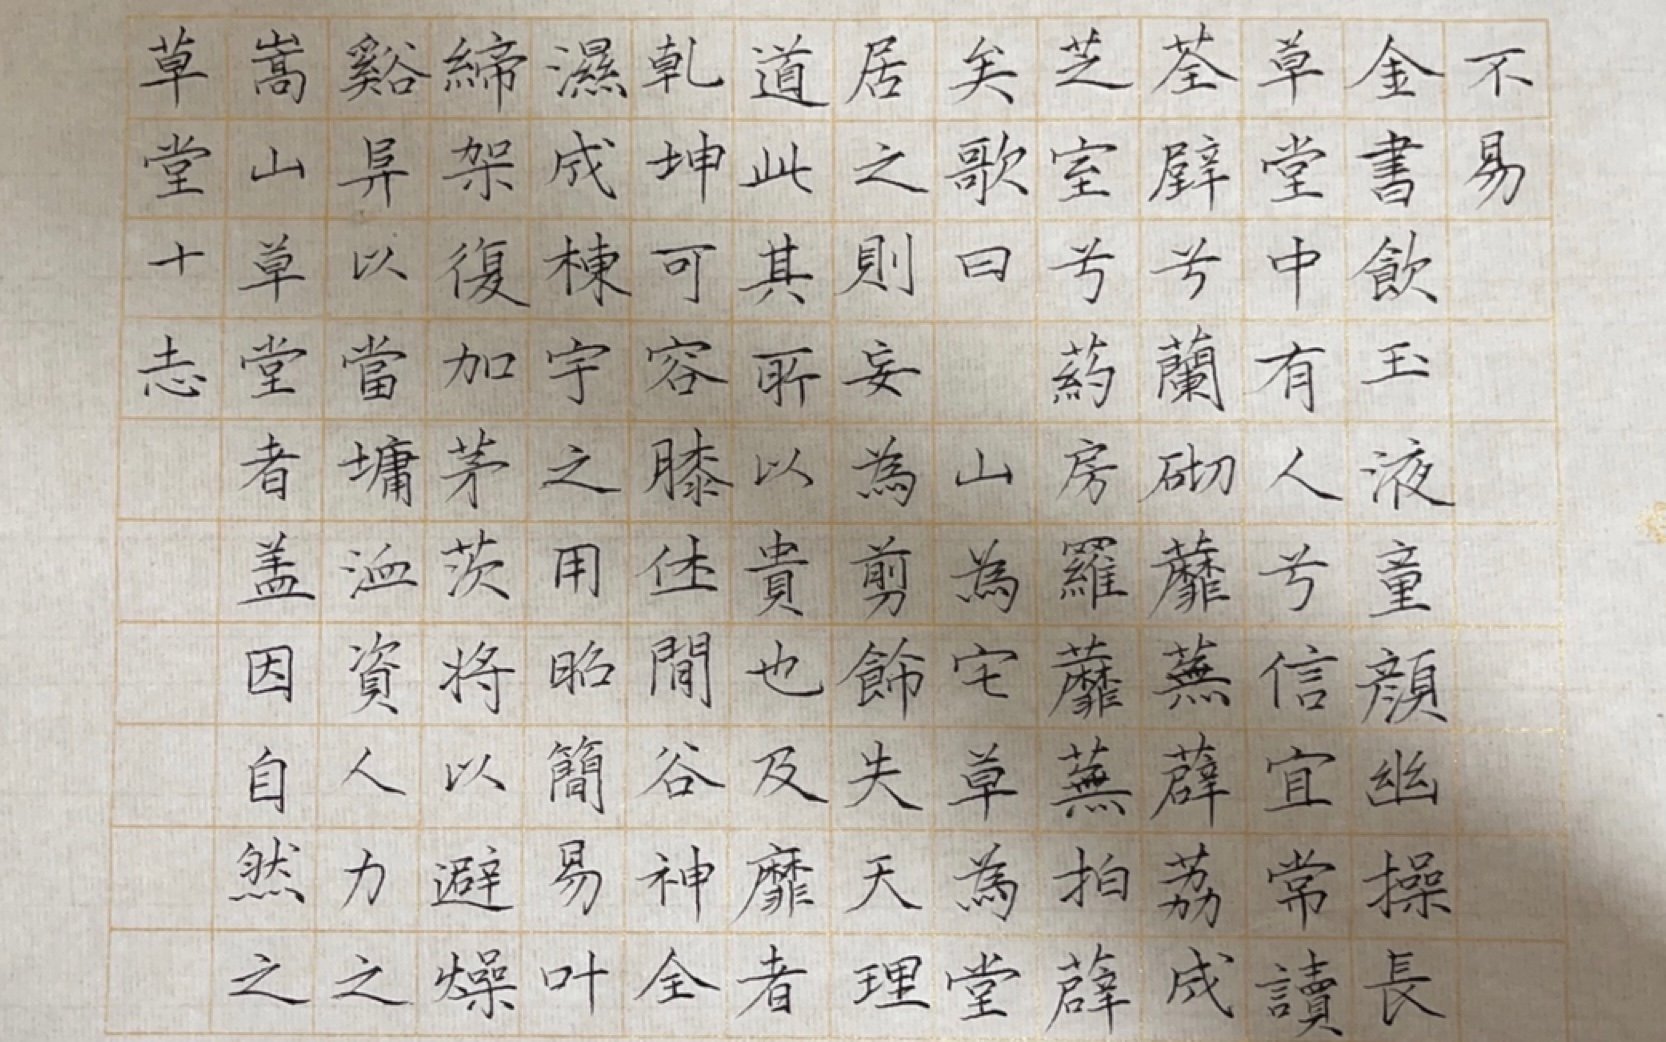 草堂十志
嵩山草堂者盖因自然之
谿阜以當墉洫資人力之
締架復加茅茨将以避燥
濕成棟宇之用昭簡易叶
乾坤可容膝休閒谷神全
道此其所以貴也及靡者
居之則妄為剪餙失天理
矣歌曰 山為宅草為堂
芝室兮葯房羅蘼蕪拍薜
荃壁兮蘭砌蘼蕪薜荔成
草堂中有人兮信宜常讀
金書飲玉液童顏幽操長
不易